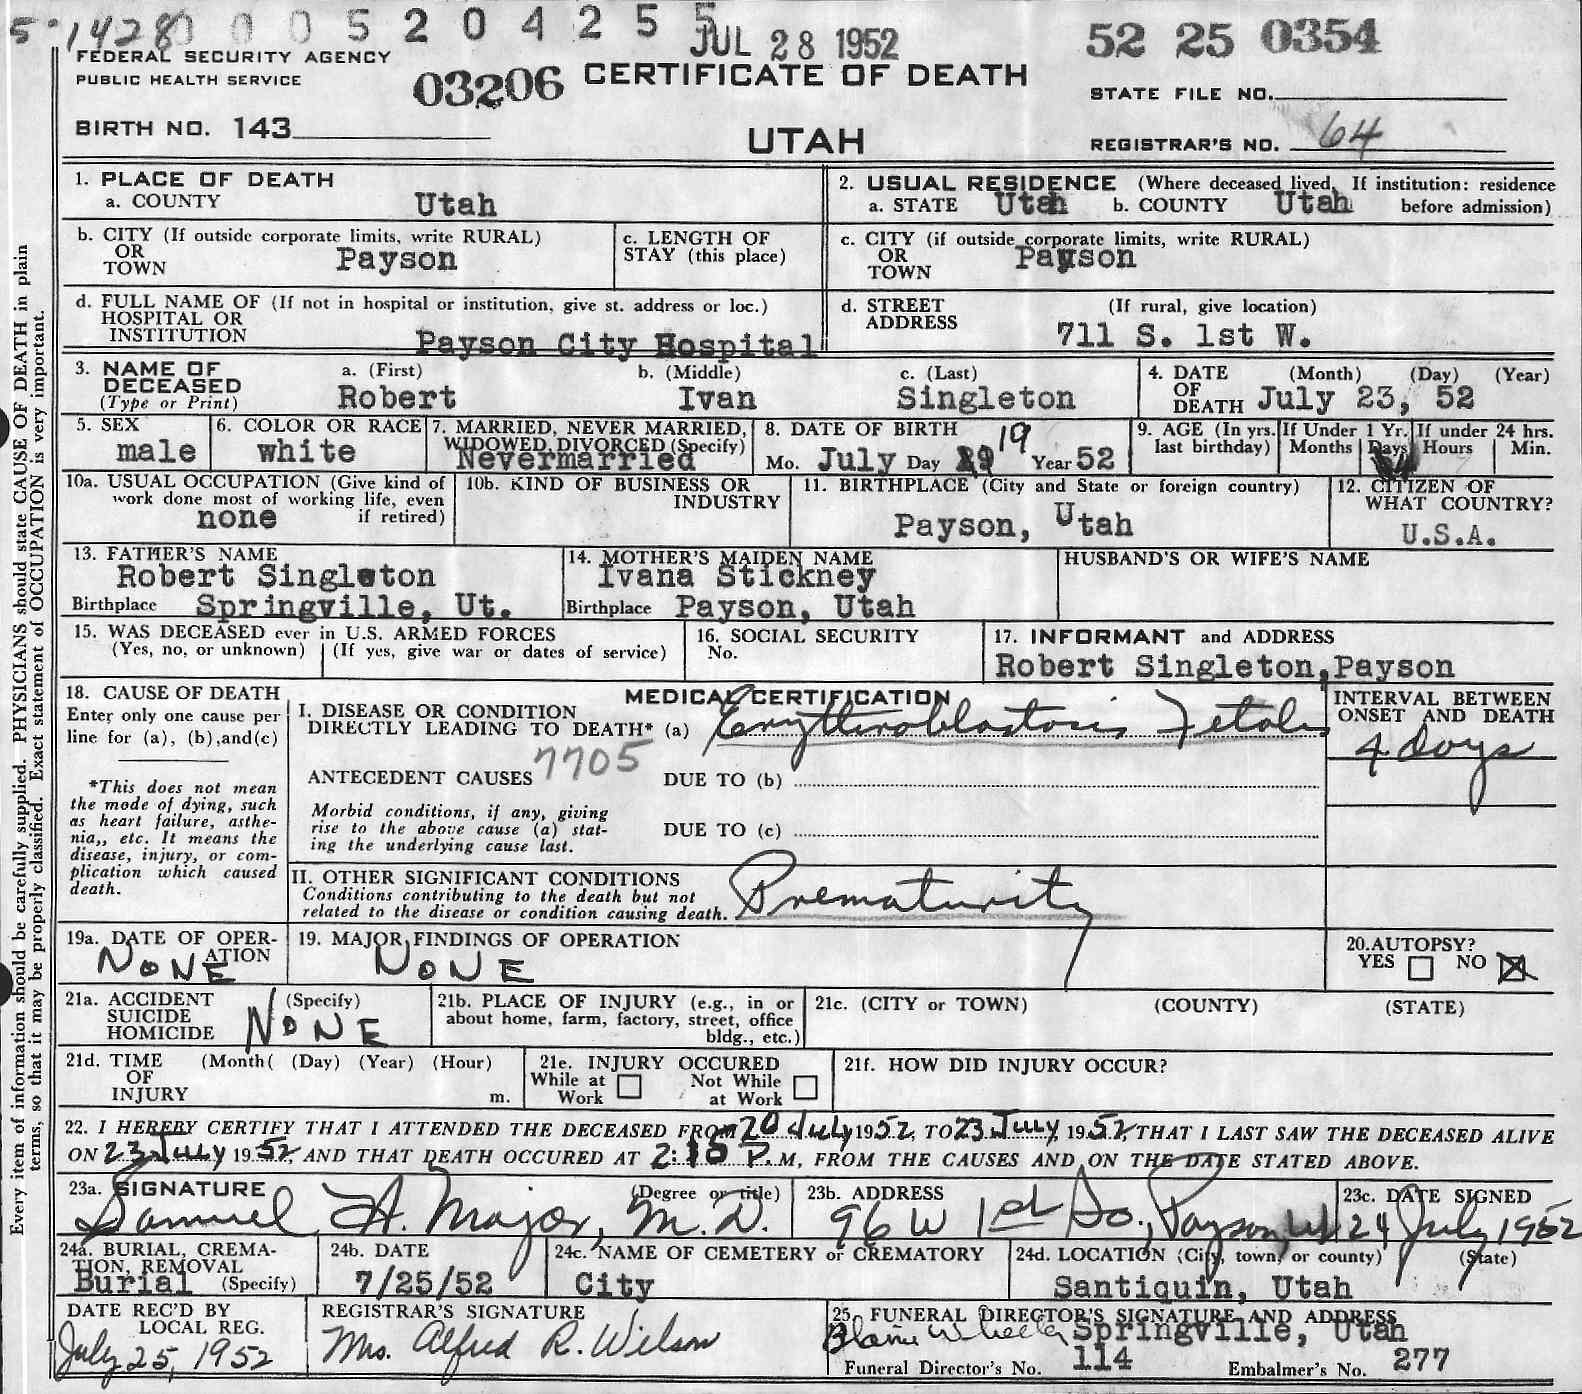 5-1428 0 0 5 2 0 4 2 5 5
JUL 28 1952
52 25 0354
FEDERAL SECURITY AGENCY
PUBLIC HEALTH SERVICE
03206
CERTIFICATE OF DEATH
STATE FILE NO.
BIRTH NO. 143
UTAH
REGISTRAR'S NO. 64
1. PLACE OF DEATH
a. COUNTY Utah
2. USUAL RESIDENCE (Where deceased lived, If institution: residence
a. STATE Utah b. COUNTY Utah before admission)
b. CITY (If outside corporate limits, write RURAL)
OR
TOWN Payson
c. LENGTH OF
STAY (this place)
c. CITY (if outside corporate limits, write RURAL)
OR
TOWN Payson
d. FULL NAME OF (If not in hospital or institution, give st. address or loc.)
HOSPITAL OR
INSTITUTION Payson City Hospital
d. STREET (If rural, give location)
ADDRESS 711 S. 1st W.
3. NAME OF
DECEASED
(Type or Print)
a. (First) b. (Middle) c. (Last)
Robert Ivan Singleton
4. DATE (Month) (Day) (Year)
OF
DEATH July 23, 52
5. SEX
male
6. COLOR OR RACE
white
7. MARRIED, NEVER MARRIED,
WIDOWED, DIVORCED (Specify)
Nevermarried
8. DATE OF BIRTH
Mo. July Day 19 Year 52
9. AGE (In yrs. last birthday)
If Under 1 Yr. Months Days
If under 24 hrs. Hours Min.
10a. USUAL OCCUPATION (Give kind of
work done most of working life, even
if retired)
none
10b. KIND OF BUSINESS OR
INDUSTRY
11. BIRTHPLACE (City and State or foreign country)
Payson, Utah
12. CITIZEN OF
WHAT COUNTRY?
U.S.A.
13. FATHER'S NAME
Robert Singleton
Birthplace Springville, Ut.
14. MOTHER'S MAIDEN NAME
Ivana Stickney
Birthplace Payson, Utah
HUSBAND'S OR WIFE'S NAME
15. WAS DECEASED ever in U.S. ARMED FORCES
(Yes, no, or unknown) (If yes, give war or dates of service)
16. SOCIAL SECURITY
No.
17. INFORMANT and ADDRESS
Robert Singleton, Payson
18. CAUSE OF DEATH
Enter only one cause per
line for (a), (b),and(c)
*This does not mean
the mode of dying, such
as heart failure, asthe-
nia,, etc. It means the
disease, injury, or com-
plication which caused
death.
MEDICAL CERTIFICATION
I. DISEASE OR CONDITION
DIRECTLY LEADING TO DEATH* (a) Erythroblastosis Fetalis
7705
ANTECEDENT CAUSES DUE TO (b)
Morbid conditions, if any, giving
rise to the above cause (a) stat-
ing the underlying cause last.
DUE TO (c)
INTERVAL BETWEEN
ONSET AND DEATH
4 days
II. OTHER SIGNIFICANT CONDITIONS
Conditions contributing to the death but not
related to the disease or condition causing death.
Prematurity
19a. DATE OF OPER-
ATION
NONE
19. MAJOR FINDINGS OF OPERATION
NONE
20. AUTOPSY?
YES NO
21a. ACCIDENT (Specify)
SUICIDE
HOMICIDE
NONE
21b. PLACE OF INJURY (e.g., in or
about home, farm, factory, street, office
bldg., etc.)
21c. (CITY or TOWN) (COUNTY) (STATE)
21d. TIME (Month( (Day) (Year) (Hour)
OF
INJURY m.
21e. INJURY OCCURED
While at Work Not While at Work
21f. HOW DID INJURY OCCUR?
22. I HEREBY CERTIFY THAT I ATTENDED THE DECEASED FROM 20 July 1952, TO 23 July, 1952, THAT I LAST SAW THE DECEASED ALIVE
ON 23 July 1952, AND THAT DEATH OCCURED AT P.M, FROM THE CAUSES AND ON THE DATE STATED ABOVE.
23a. SIGNATURE (Degree or title)
Samuel H. Major, M.D.
23b. ADDRESS
96 W 1st So., Payson, Ut
23c. DATE SIGNED
24 July 1952
24a. BURIAL, CREMA-
TION, REMOVAL
Burial (Specify)
24b. DATE
7/25/52
24c. NAME OF CEMETERY or CREMATORY
City
24d. LOCATION (City, town, or county) (State)
Santiquin, Utah
DATE REC'D BY
LOCAL REG.
July 25, 1952
REGISTRAR'S SIGNATURE
Mrs. Alfred R. Wilson
25. FUNERAL DIRECTOR'S SIGNATURE AND ADDRESS
Blaine Wheeler Springville, Utah
Funeral Director's No. 114 Embalmer's No. 277
Every item of information should be carefully supplied. PHYSICIANS should state CAUSE OF DEATH in plain
terms, so that it may be properly classified. Exact statement of OCCUPATION is very important.